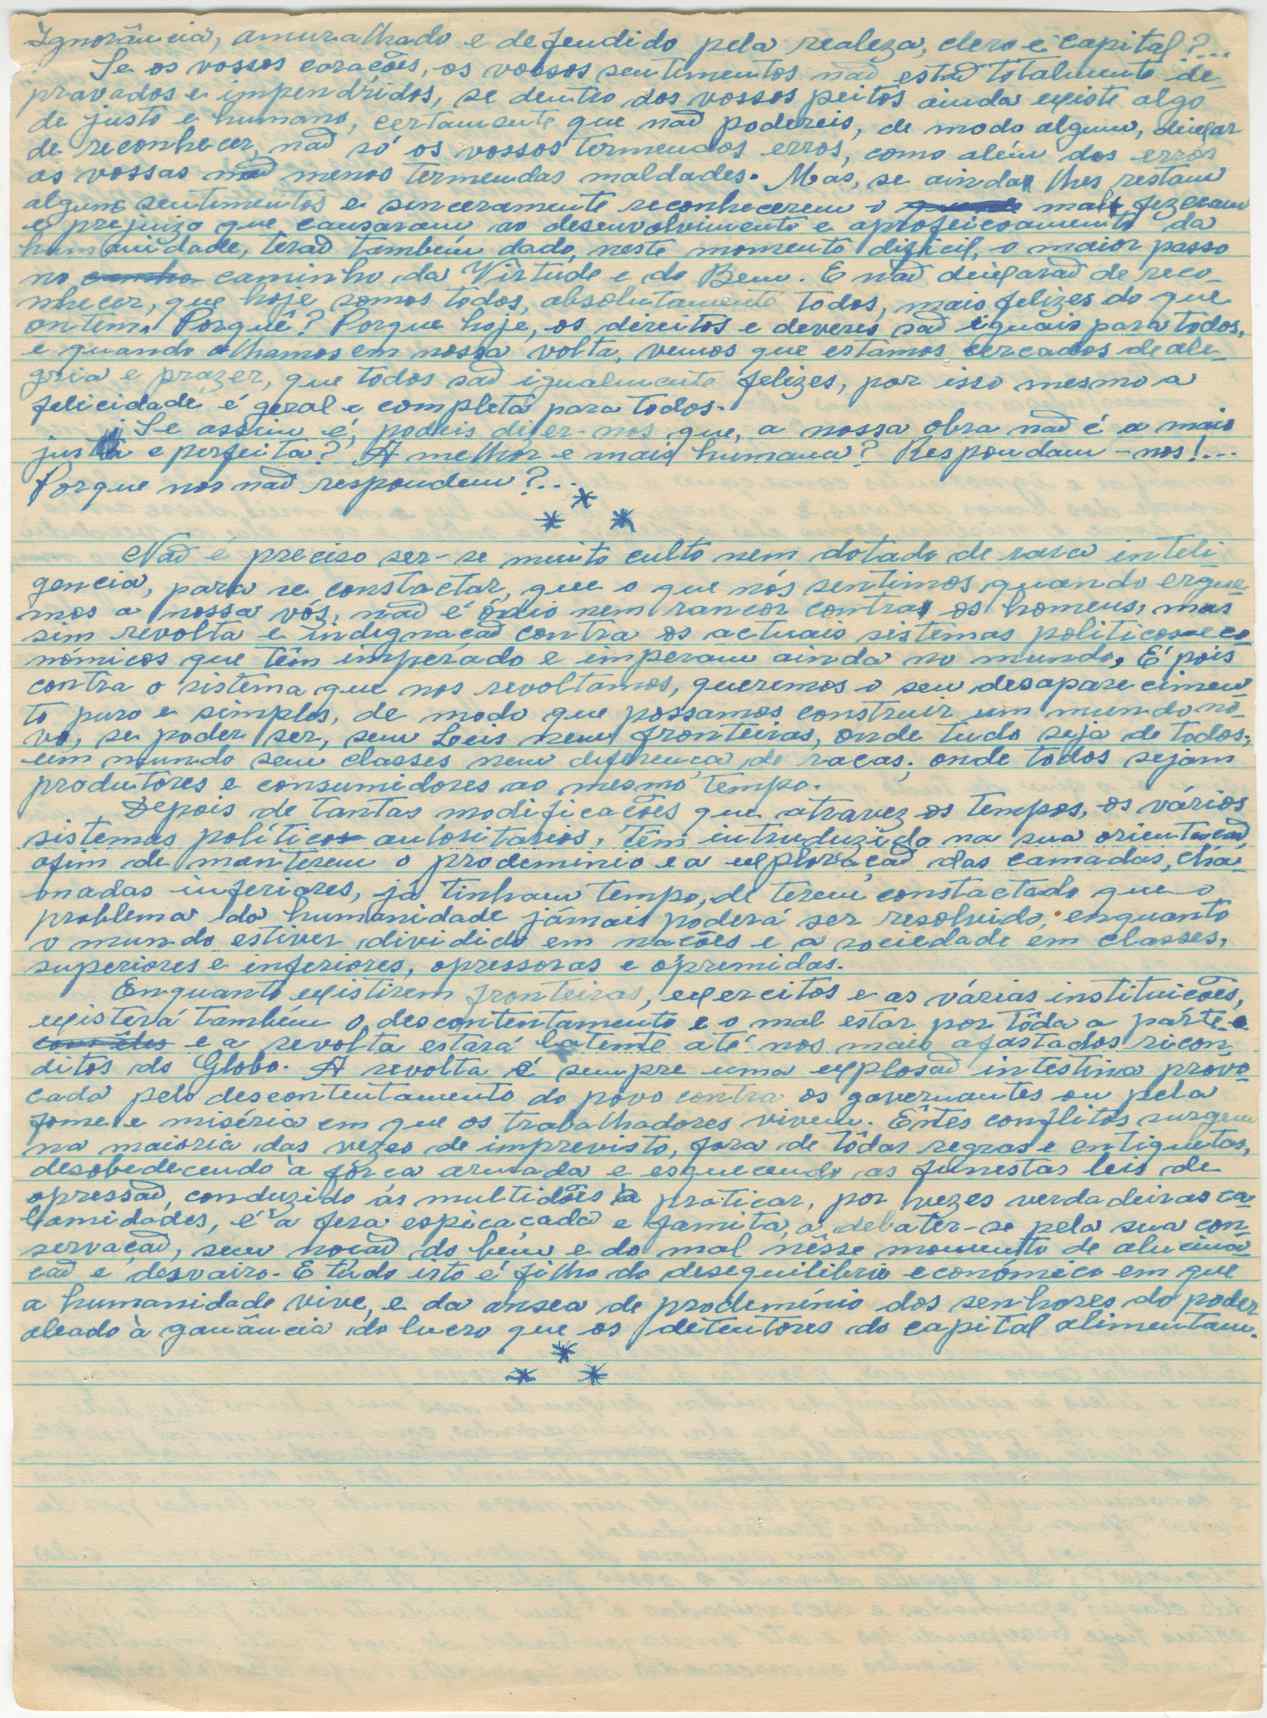 Ignorância, amuralhado e defendido pela realeza, clero e Capital?...
Se os vossos corações, os vossos sentimentos não estão totalmente de-
pravados e impendridos, se dentro dos vossos peitos ainda existe algo
de justo e humano, certamente que não podereis, de modo algum, deixar
de reconhecer, não só os vossos tremendos erros, como além dos erros
as vossas não menos tremendas maldades. Mas, se ainda lhes restam
alguns sentimentos e sinceramente reconhecerem o mal fizeram
e prejuizo que causaram ao desenvolvimento e aprofeicoamento da
humanidade, terão também dado, neste momento dificil, o maior passo
no caminho da Virtude e do Bem. E não deixarão de reco-
nhecer, que hoje somos todos, absolutamente todos, mais felizes do que
ontem. Porquê? Porque hoje, os direitos e deveres são iguais para todos,
e quando olhamos em nossa volta, vemos que estamos cercados de ale-
gria e prazer, que todos são igualmente felizes, por isso mesmo a
felicidade é geral e completa para todos.
Se assim é, podeis dizer-nos que, a nossa obra não é a mais
justa e perfeita? A melhor e mais humana? Respondam-nos!...
Porque nos não respondem?...
* * *
Não é preciso ser-se muito culto nem dotado de rara inteli
gencia, para se constactar, que o que nós sentimos quando ergue-
mos a nossa vós, não é ódio nem rancor contra os homens, mas
sim revolta e indignacão contra os actuais sistemas politicos-eco
nómicos que têm imperado e imperam ainda no mundo, E' pois
contra o sistema que nos revoltamos, queremos o seu desaparecimen-
to puro e simples, de modo que possamos construir um mundo no-
vo, se poder ser, sem Leis nem fronteiras, onde tudo seja de todos,
um mundo sem classes nem diferença de racas; onde todos sejam
produtores e consumidores ao mesmo tempo.
Depois de tantas modificações que atravez os tempos, os vários
sistemas políticos autoritarios, têm introduzido na sua orientacão
afim de manterem o prodeminio e a exploracão das camadas, cha-
madas inferiores, já tinham tempo, de terem constactado que o
problema da humanidade jámais poderá ser resolvido, enquanto
o mundo estiver dividido em nacões e a sociedade em classes,
superiores e inferiores, opressoras e opremidas.
Enquanto existirem fronteiras, exercitos e as várias instituicões,
existirá também o descontentamento e o mal estar por tôda a párte e
e a revolta estará latente até nos mais afastados recon
ditos do Globo. A revolta é sempre uma explosão intestina provo-
cada pelo descontentamento do povo contra os governantes ou pela
fome e miséria em que os trabalhadores vivem. Êstes conflitos surgem
na maioria das vezes de imprevisto, fora de tôdas regras e entiquetas,
desobedecendo à fôrca armada e esquecendo as funestas leis de
opressão, conduzido ás multidões à praticar, por vezes verdadeiras ca-
lamidades, é a fera espicacada e famita, a debater-se pela sua con-
servacão, sem nocão do bém e do mal nêsse momento de alucina-
cão e desvairo. E túdo isto é filho do desequilibrio económico em que
a humanidade vive, e da ansea de prodemínio dos senhores do poder
aleado à ganância do lucro que os detentores do capital alimentam.
* * *